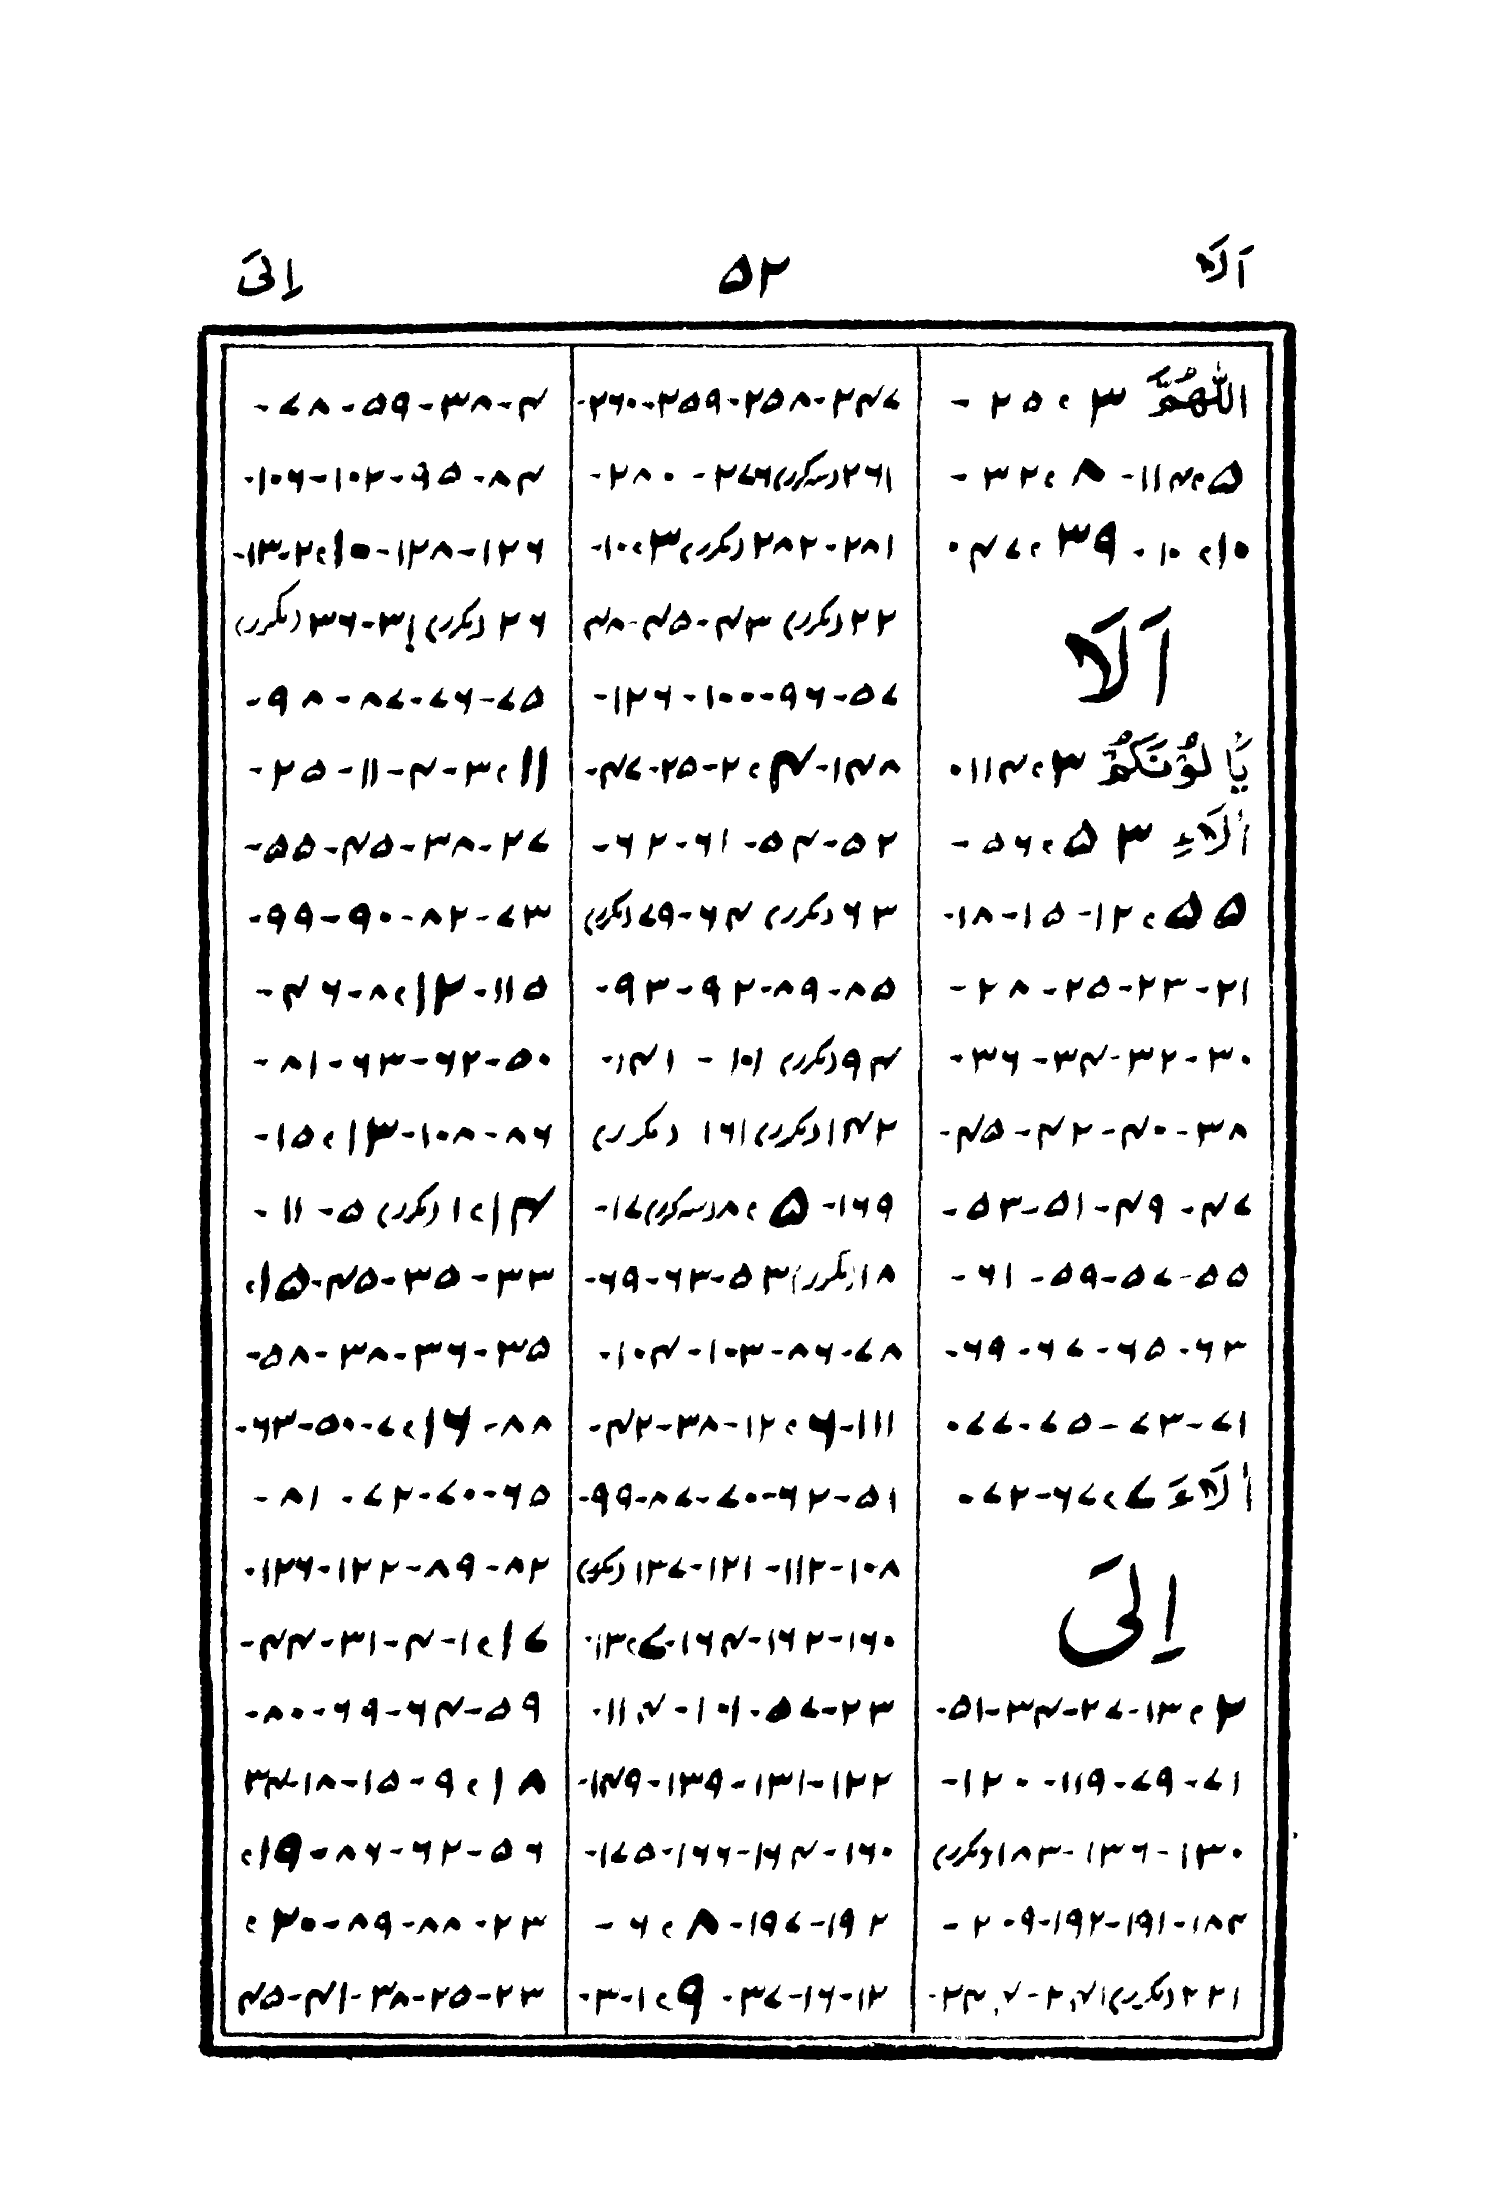 آلَا
۵۲
إِلَى
اللّٰهُمَّ ۳؛ ۲۵ -
۵؛ ۱۱۴ - ۸؛ ۳۲ -
۱۰؛ ۱۰ - ۳۹؛ ۴۷ -
آلَا
يَأْلُوْنَكُمْ ۳؛ ۱۱۴ -
آلَاءِ ۵۳؛ ۵۶ -
۵۵؛ ۱۲ - ۱۵ - ۱۸ -
۲۱ - ۲۳ - ۲۵ - ۲۸ -
۳۰ - ۳۲ - ۳۴ - ۳۶ -
۳۸ - ۴۰ - ۴۲ - ۴۵ -
۴۷ - ۴۹ - ۵۱ - ۵۳ -
۵۵ - ۵۷ - ۵۹ - ۶۱ -
۶۳ - ۶۵ - ۶۷ - ۶۹ -
۷۱ - ۷۳ - ۷۵ - ۷۷ -
آلَاءَ ۷؛ ۶۷ - ۷۲ -
إِلَى
۲؛ ۱۳ - ۲۷ - ۳۴ - ۵۱ -
۷۱ - ۷۹ - ۱۱۹ - ۱۲۰ -
۱۳۰ - ۱۳۶ - ۱۸۳ (مکرر)
۱۸۴ - ۱۹۱ - ۱۹۲ - ۲۰۹ -
۲۲۱ (مکرر)
۲۴۷ - ۲۵۸ - ۲۵۹ - ۲۶۰ -
۲۶۱ (سہ کرر) ۲۷۶ - ۲۸۰ -
۲۸۱ - ۲۸۲ (مکرر) ۳؛ ۱۰ -
۲۲ (مکرر) ۴۳ - ۴۵ - ۴۸
۵۷ - ۹۶ - ۱۰۰ - ۱۲۶ -
۱۴۸ - ۴؛ ۲ - ۲۵ - ۴۷ -
۵۲ - ۵۴ - ۶۱ - ۶۲ -
۶۳ (مکرر) ۶۴ - ۷۹ (مکرر)
۸۵ - ۸۹ - ۹۲ - ۹۳ -
۹۴ (مکرر) ۱۰۱ - ۱۴۱ -
۱۴۲ (مکرر) ۱۶۱ (مکرر)
۱۶۹ - ۵؛ ۸ (سہ کرر) ۱۷ -
۱۸ (مکرر) ۵۳ - ۶۳ - ۶۹ -
۷۸ - ۸۶ - ۱۰۳ - ۱۰۴ -
۱۱۱ - ۶؛ ۱۲ - ۳۸ - ۴۲ -
۵۱ - ۶۲ - ۷۰ - ۸۷ - ۹۹ -
۱۰۸ - ۱۱۲ - ۱۲۱ - ۱۳۷ (مکرر)
۱۶۰ - ۱۶۲ - ۱۶۴ - ۷؛ ۱۳ -
۲۳ - ۵۷ - ۱۰۱ - ۱۱۴ -
۱۲۲ - ۱۳۱ - ۱۳۹ - ۱۴۹ -
۱۶۰ - ۱۶۴ - ۱۶۶ - ۱۷۵ -
۱۹۲ - ۱۹۷ - ۸؛ ۶ -
۱۲ - ۱۶ - ۳۷ - ۹؛ ۱ - ۳ -
۴ - ۳۸ - ۵۹ - ۷۸ -
۸۴ - ۹۵ - ۱۰۲ - ۱۰۶ -
۱۲۶ - ۱۲۸ - ۱۰؛ ۲ - ۱۳ -
۲۶ (مکرر) ۳۱ - ۳۶ (مکرر)
۷۵ - ۷۶ - ۸۷ - ۹۸ -
۱۱؛ ۳ - ۴ - ۱۱ - ۲۵ -
۲۷ - ۳۸ - ۴۵ - ۵۵ -
۷۳ - ۸۲ - ۹۰ - ۹۹ -
۱۱۵ - ۱۲؛ ۸ - ۴۶ -
۵۰ - ۶۲ - ۶۳ - ۸۱ -
۸۶ - ۱۰۸ - ۱۳؛ ۱۵ -
۱۴؛ ۱ (مکرر) ۵ - ۱۱ -
۳۳ - ۳۵ - ۴۵ - ۱۵؛
۳۵ - ۳۶ - ۳۸ - ۵۸ -
۸۸ - ۱۶؛ ۷ - ۵۰ - ۶۳ -
۶۵ - ۷۰ - ۷۲ - ۸۱ -
۸۲ - ۸۹ - ۱۲۲ - ۱۲۶ -
۱۷؛ ۱ - ۴ - ۳۱ - ۴۴ -
۵۹ - ۶۴ - ۶۹ - ۸۰ -
۱۸؛ ۹ - ۱۵ - ۱۸ - ۳۴
۵۶ - ۶۲ - ۸۶ - ۱۹؛
۲۳ - ۸۸ - ۸۹ - ۲۰؛
۲۳ - ۲۵ - ۳۸ - ۴۱ - ۴۵